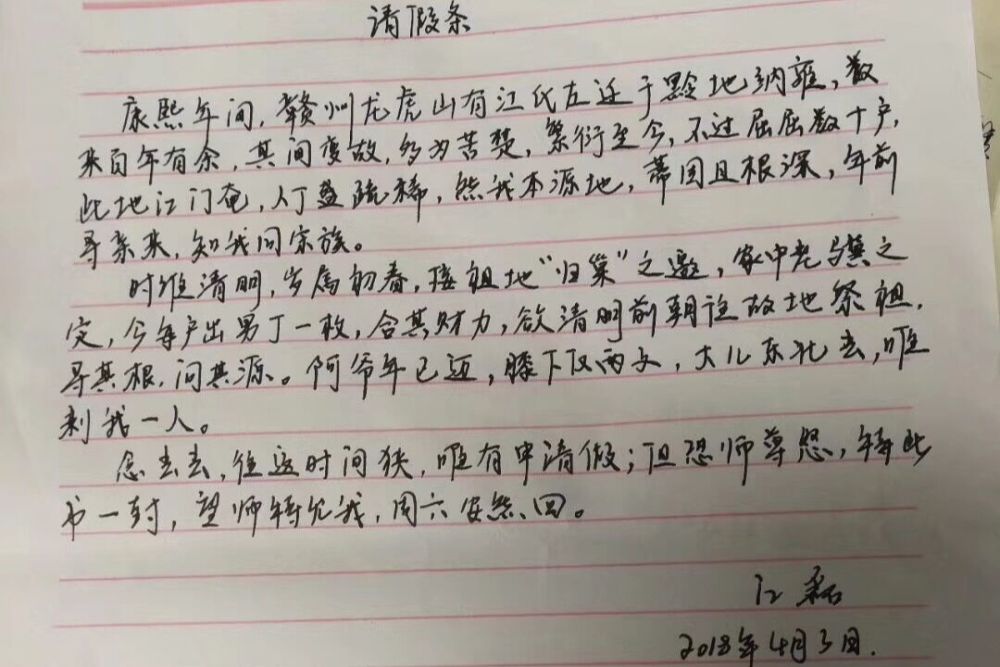 请假条
康熙年间,赣州龙虎山有江氏左迁于黔地纳雍,数
来百年有余,其间变故,多为苦楚,繁衍至今,不过屈屈数十户,
此地江门奄,人丁益疏稀,然我本源地,蒂固且根深,年前
寻亲来,知我同宗族。
时维清明,岁属初春,接祖地“归巢”之邀,家中老
定,今每户出男丁一枚,合其财力,欲清明前朝往故地祭祖,
寻其根,问其源。阿爷年已迈,膝下仅两子,大儿东北去,唯
剩我一人。
念去去,往返时间狭,唯有申请假;但恐师尊怒,特此
书一封,望师特允我,周六安然回。
江磊
2018年4月3日.